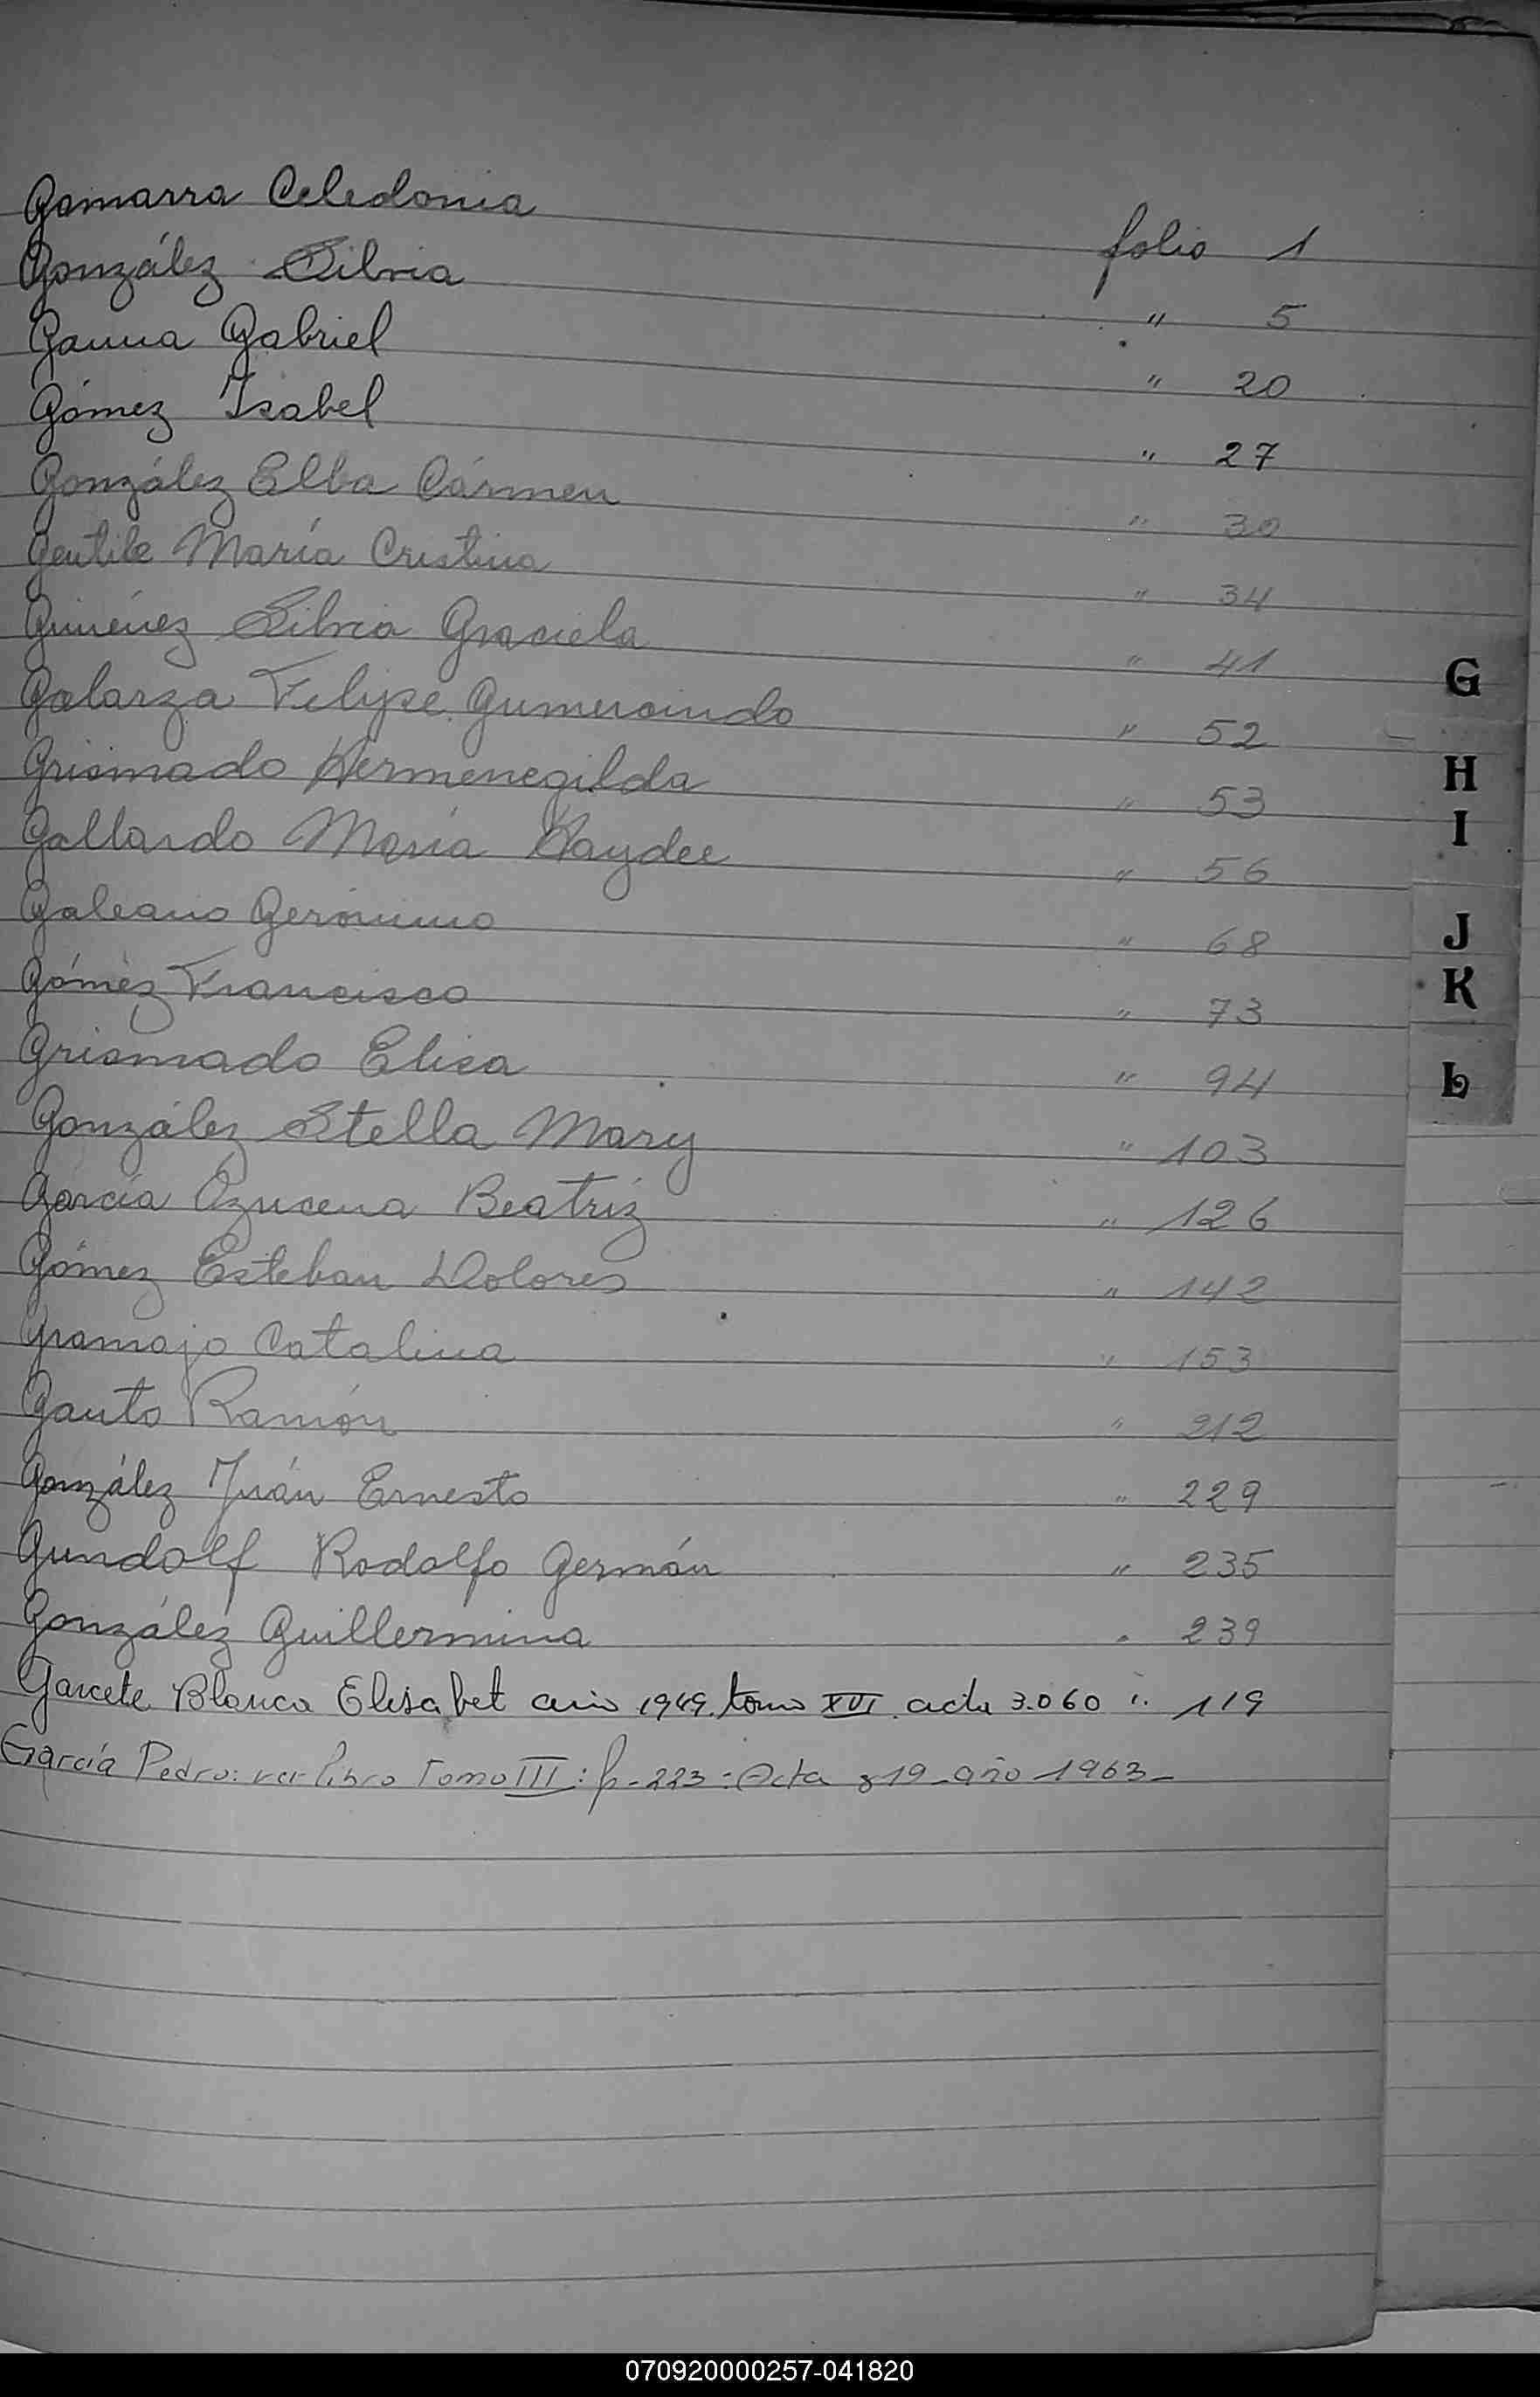 Gamarra Celedonia folio 1
González Silvia " 5
Gauna Gabriel " 20
Gómez Isabel " 27
González Elba Cármen " 30
Gentile María Cristina " 34
Giménez Silvia Graciela " 41
Galarza Felipe Gumercindo " 52
Grismado Hermenegilda " 53
Gallardo María Haydee " 56
Galeano Gerónimo " 68
Gómez Francisco " 73
Grismado Elisa " 94
González Stella Mary " 103
García Azucena Beatriz " 126
Gómez Esteban Dolores " 142
Gramajo Catalina " 153
Gauto Ramón " 212
González Juán Ernesto " 229
Gundolf Rodolfo Germán " 235
González Guillermina " 239
Garcete Blanca Elisabet año 1949. tomo XVI acta 3.060 119
García Pedro: ver libro Tomo III: f-223: Acta 819-año 1963-
G
H
I
J
K
L
070920000257-041820